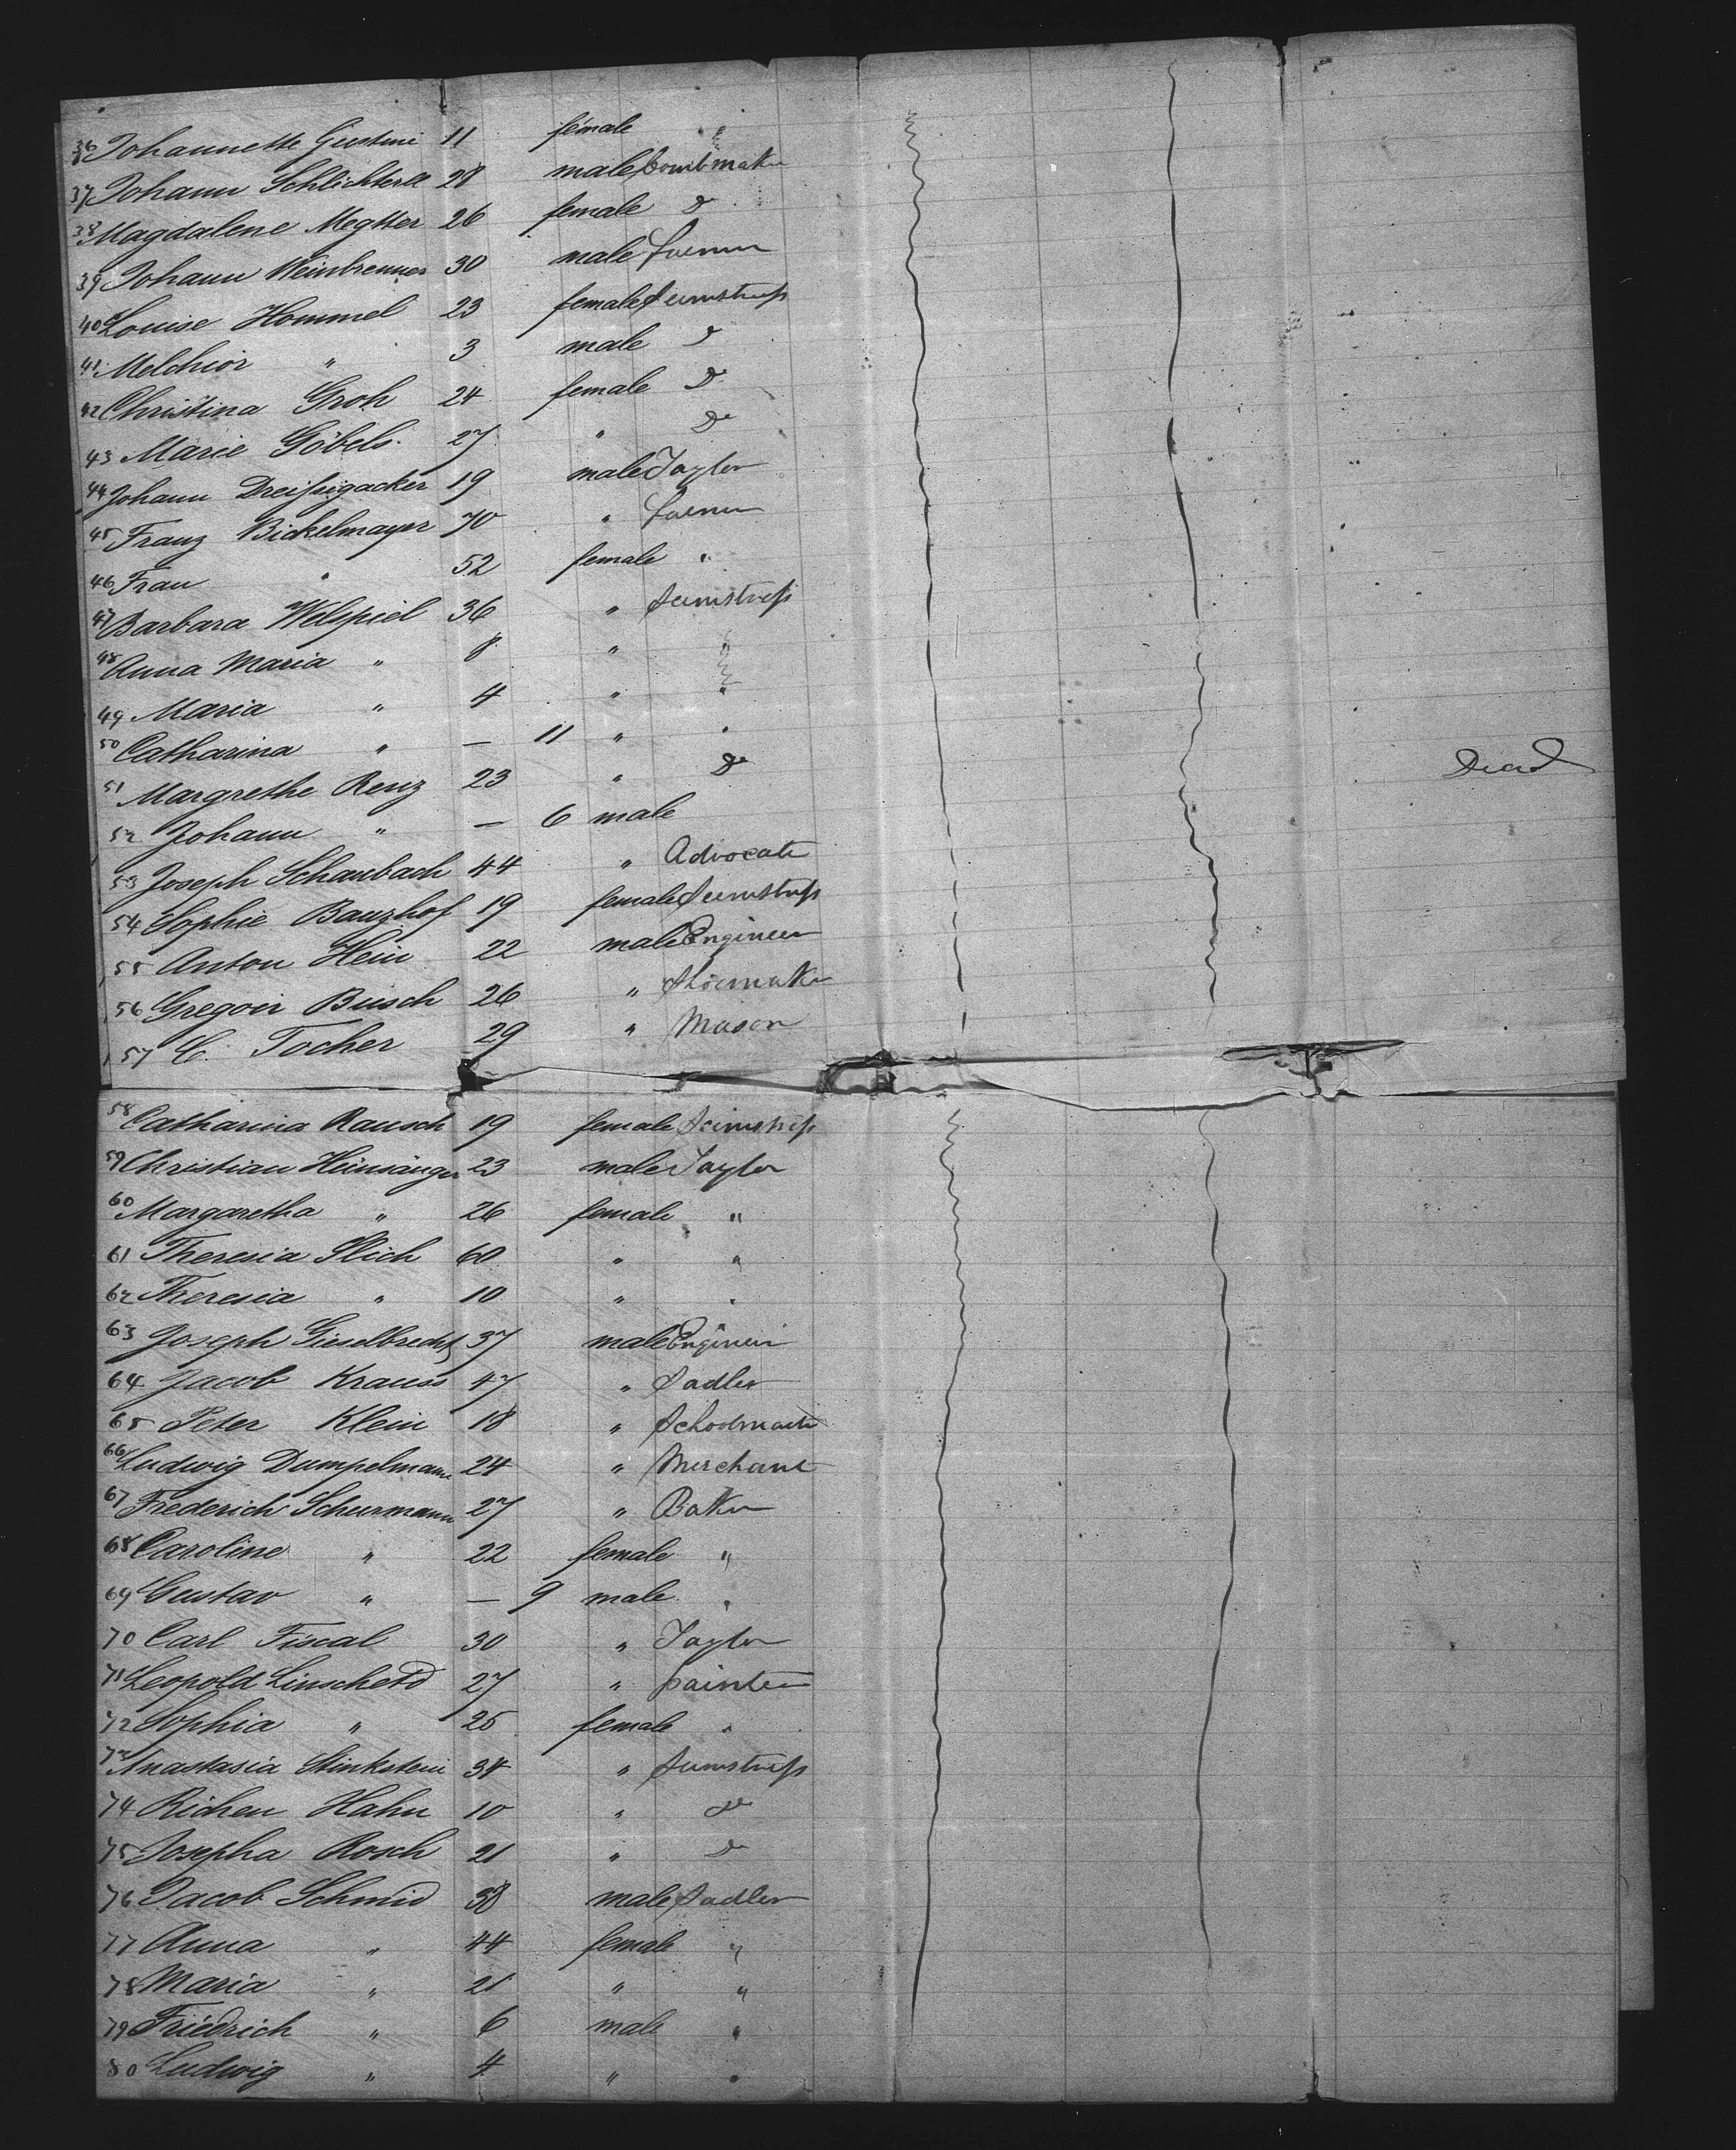 36 Johannette Giustini 11 female "
37 Johann Schlichterll 28 male Combmaker
38 Magdalene Megtter 26 female Do
39 Johann Weinbrenner 30 male Farmer
40 Louise Hommel 23 female Seemstress
41 Melchior " 3 male Do
42 Christina Groh 24 female Do
43 Marie Göbels 27 " Do
44 Johann Dreissigacker 19 male Taylor
45 Franz Bickelmayer 70 " Farmer
46 Frau " 52 female "
47 Barbara Welspiel 36 " Seemstress
48 Anna Maria " 8 " "
49 Maria " 4 " "
50 Catharina " — 11 " "
51 Margrethe Renz 23 " Do Dead
52 Johann " — 6 male
53 Joseph Schaubach 44 " Advocate
54 Sophie Bauzhof 19 female Seemstress
55 Anton Hein 22 male Engineer
56 Gregoir Busch 26 " Shoemaker
57 C. Tocher 29 " Mason
58 Catharina Rausch 19 female Seemstress
59 Christian Heinsänger 23 male Taylor
60 Margaretha " 26 female "
61 Theresia Slich 60 " "
62 Theresia " 10 " "
63 Joseph Gieselbrecht 37 male Engineer
64 Jacob Krauss 47 " Sadler
65 Peter Klein 18 " Schoolmaster
66 Ludwig Dumpelmann 24 " Merchant
67 Frederich Schurmann 27 " Baker
68 Caroline " 22 female "
69 Gustav " — 9 male "
70 Carl Fiscal 30 " Taylor
71 Leopold Linscheid 27 " painter
72 Sophia " 25 female "
73 Anastasia Stinkstein 34 " Seemstress
74 Richen Hahn 10 " Do
75 Josepha Rosch 21 " Do
76 Jacob Schmid 38 male Sadler
77 Anna " 44 female "
78 Maria " 21 " "
79 Friedrich " 6 male "
80 Ludwig " 4 " "